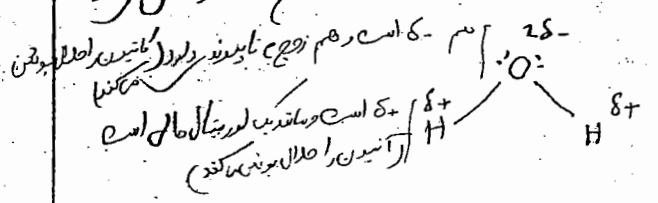 سر δ- است و هم زوج e ناپیوندی دارد (کاتیون را حلال پوشی می‌کند)
2δ-
:O:
δ+ است و مانند یک اوربیتال خالی است
(آنیون را حلال پوشی می‌کند)
δ+
H
H
δ+